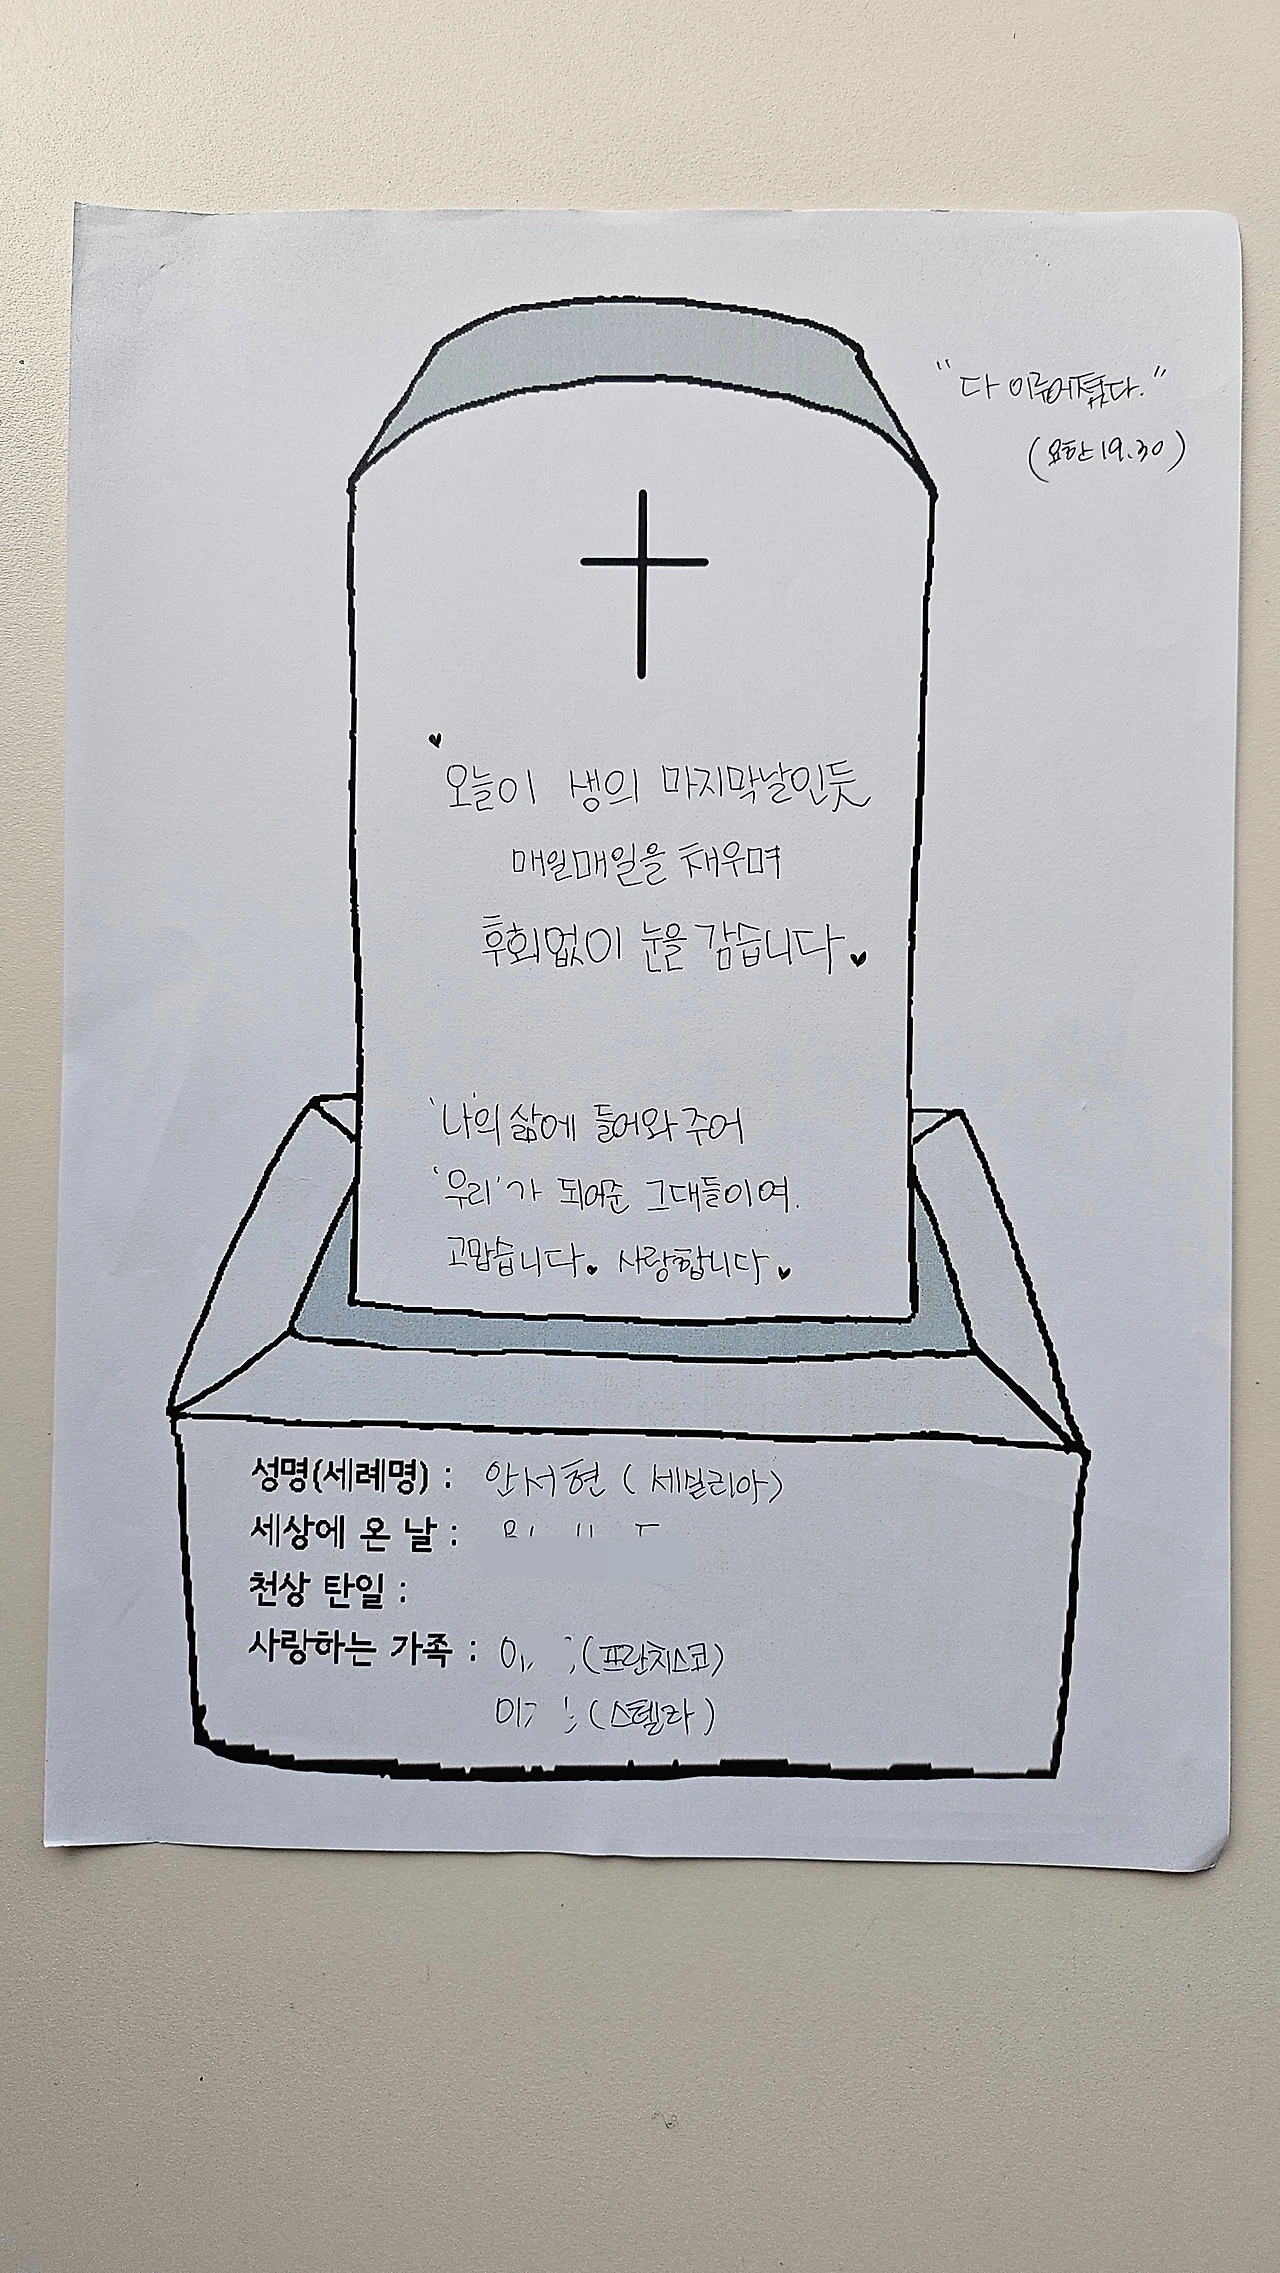 "다 이루어졌다."
(요한 19.30)
오늘이 생의 마지막날인듯
매일매일을 채우며
후회없이 눈을 감습니다
'나'의 삶에 들어와 주어
'우리'가 되어준 그대들이여.
고맙습니다. 사랑합니다
성명(세례명) : 안서현 (세실리아)
세상에 온 날 :
천상 탄일 :
사랑하는 가족 : (프란치스코)
(스텔라)